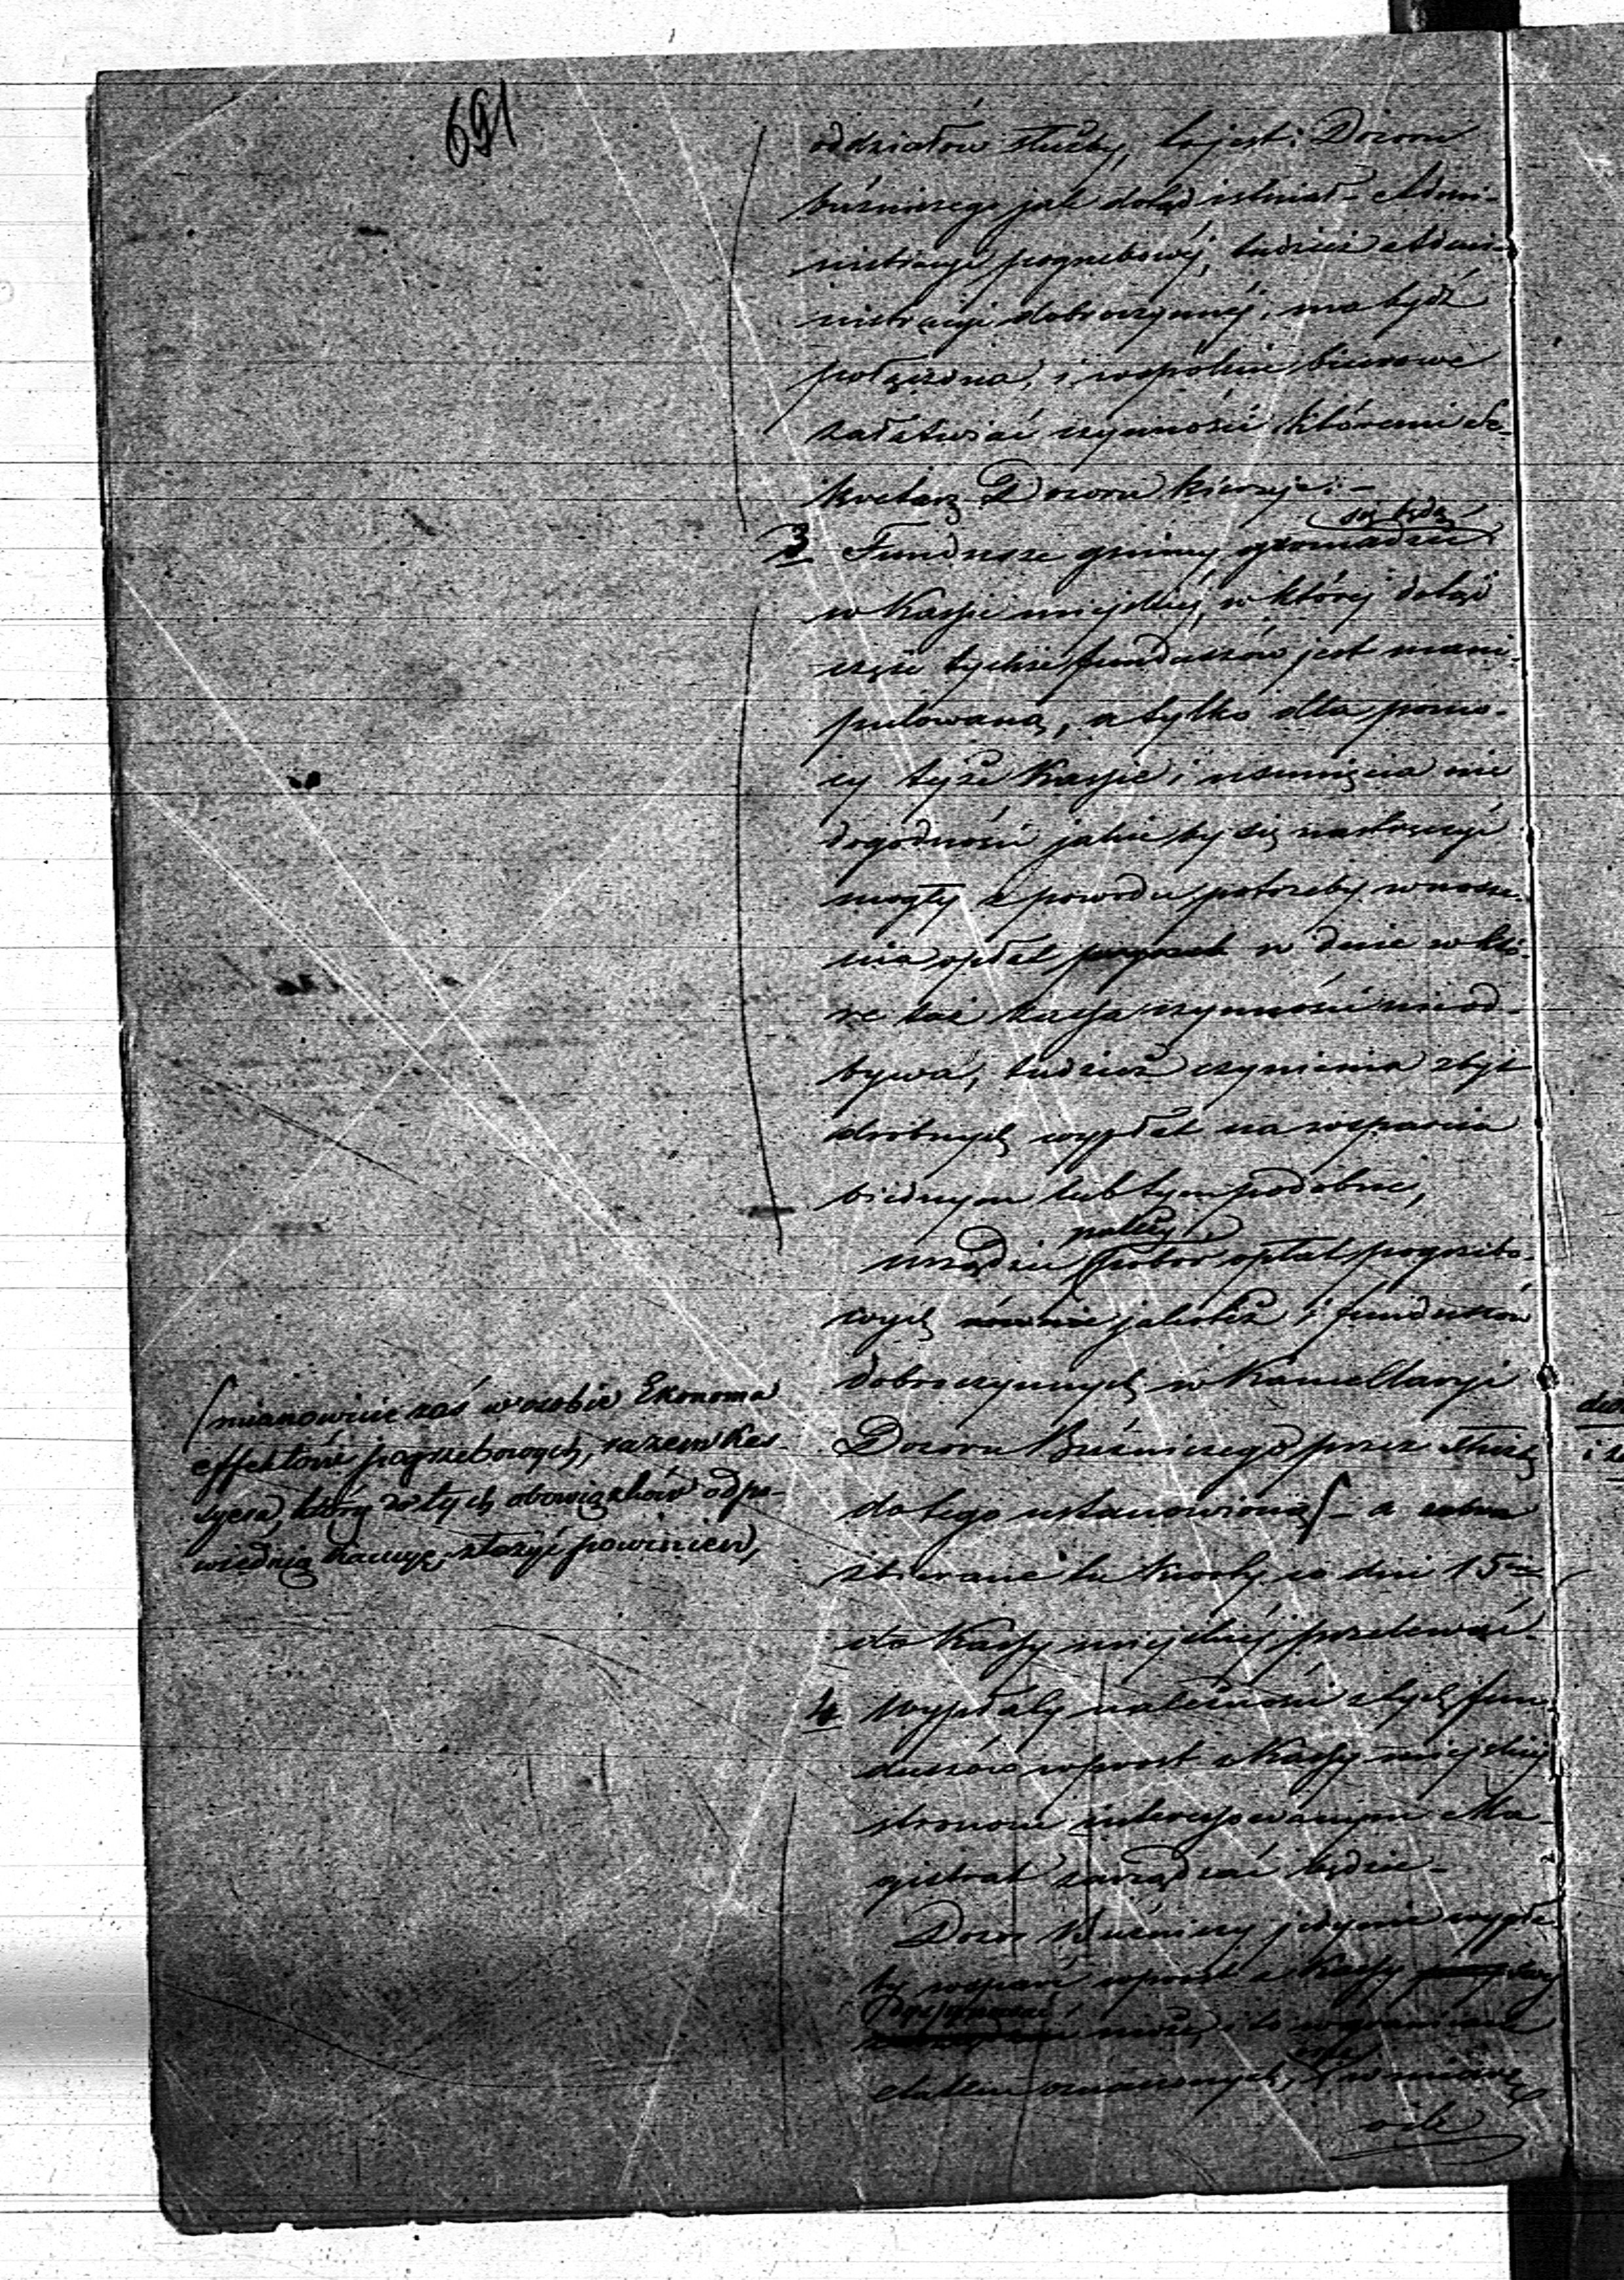 691
oddziałów służby, to jest: Dozoru
bużniczego jak dotąd istniał - Admi-
nistracyi pogrzebowéj, tudzież Admi-
nistracyi dobroczynnéj, ma bydź
połączona, i wspólnie biurowe
załatwiać czynności któremi Se-
kretarz Dozoru kieruje. -
się będą
3 Fundusze gminy gromadzić
w Kassie miejskiéj, w któréj dotąd
część tychże funduszów jest mani-
pulowaną, a tylko dla pomo-
cy tejże Kassie i usunięcia nie
dogodności jakie by się nastręczyć
mogły z powodu potrzeby wnosze-
nia opłat w dnie w któ-
re taż kassa czynności nieod-
bywa, tudzież czynienia zbyt
drobnych wypłat na wsparcia
biednym lub tym podobne,
należy
urządzić pobór opłat pogrzebo-
wych równie jakoteż i funduszów
dobroczynnych w Kancellaryi
Dozoru Bużniczego przez
do tego ustanowioną - a
zbierane tu kwoty co dni 15
do Kassy miejskiéj przelewać.
mianowicie zaś w osobie Ekonoma
effektów pogrzebowych, razem Kas-
syera, który do tych obowiązków odpo-
wiednią kaucyę złożyć powinien,
4 Wypłaty należności z tych fun-
duszów wprost z Kassy miejskiéj
stronom interessowanym Ma-
gistrat zarządzać będzie -
Dozór Bużniczy jedynie wypła-
ty wsparć wprost z Kassy
może, i to w granicach
etatem oznaczonych, w miarę
o ile